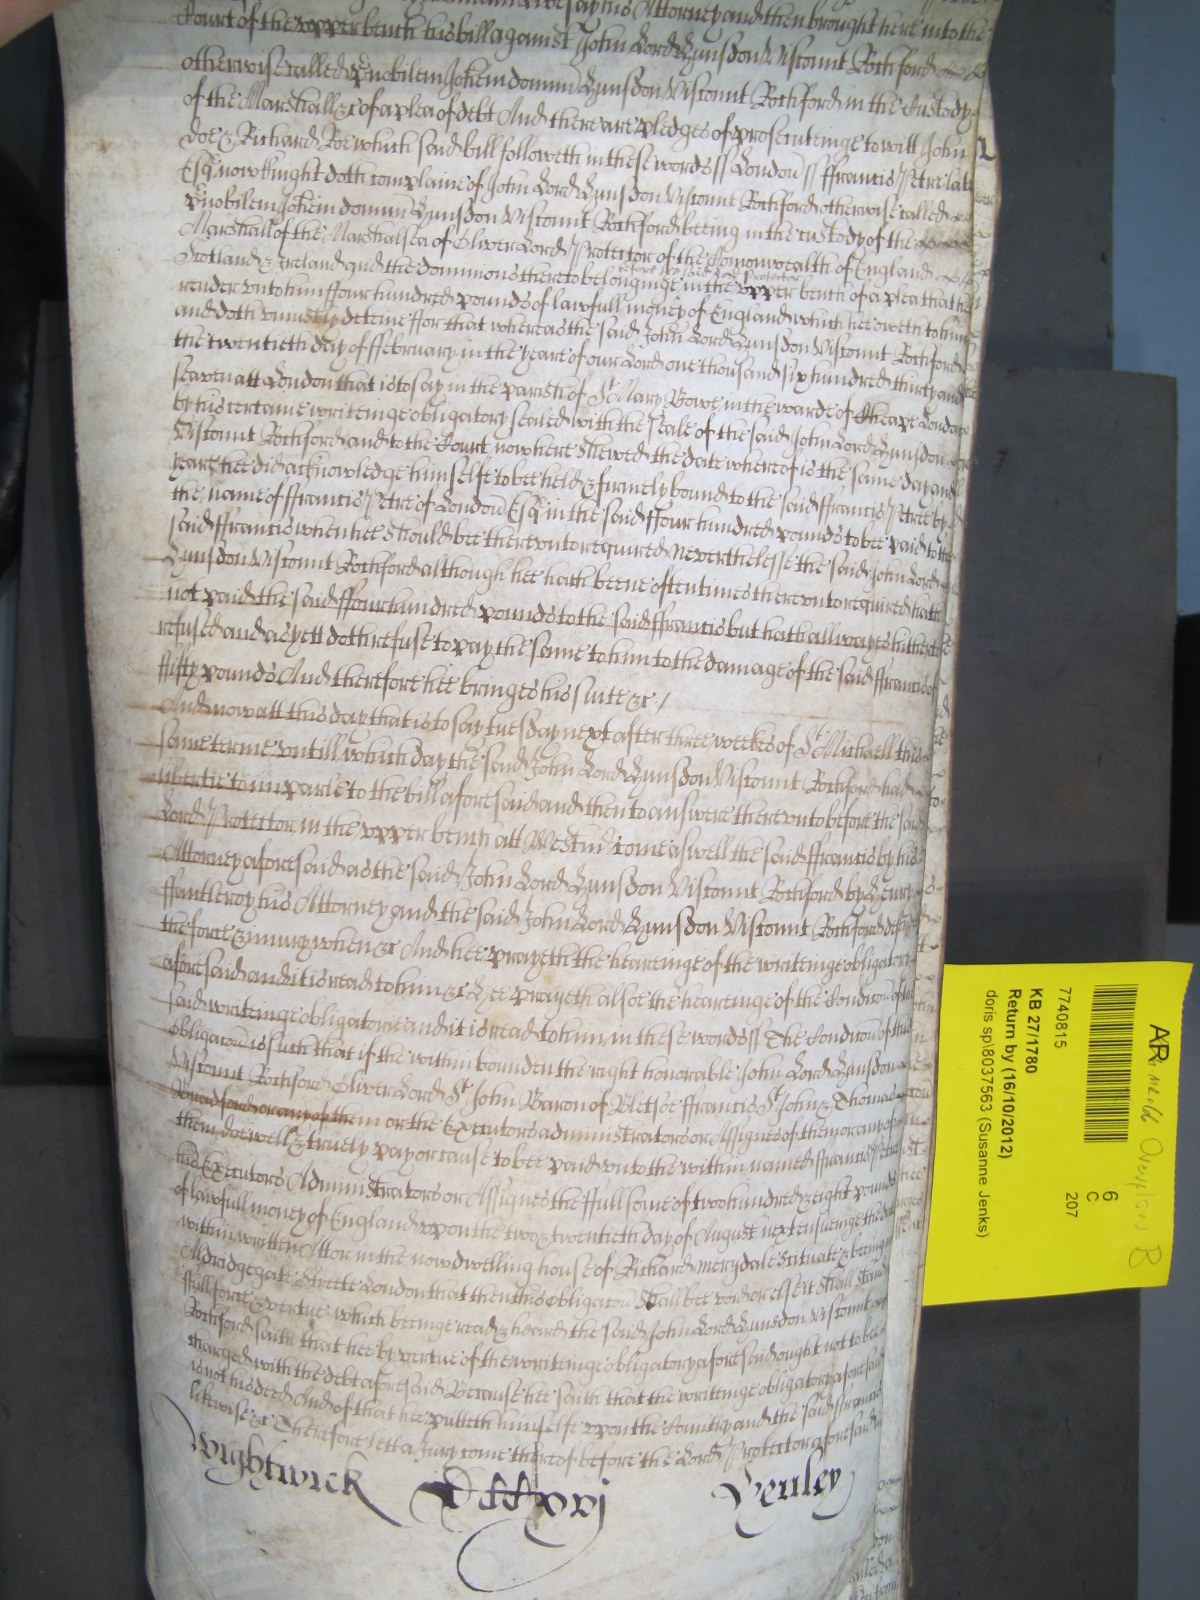 his Attorney and then brought here into the
Court of the upper bench his bill against John Lord Hunsdon Viscount Rochford
otherwise called nobilem Johem dominu Hunsdon Viscount Rochford in the Custody
of the Marshall &c of a plea of debt And there are pledges of prosecuteinge to witt John
Doe & Richard Roe which said bill followeth in these words // London // ffrancis Petre late
Esqr now knight doth complaine of John Lord Hunsdon Viscount Rochford otherwise called
nobilem Johem dominu Hunsdon Viscount Rochford beeing in the custody of the
Marshall of the Marshalsea of Oliver Lord Protector of the Comonwealth of England
Scotland & Ireland and the dominions thereto belonginge before the said Lord Protector in the upper bench of a plea that hee
render unto him ffour hundred pounds of lawfull money of England which hee oweth to him
and doth uniustly deteine ffor that whereas the said John Lord Hunsdon Viscount Rochford
the twentieth day of ffebruary in the yeare of our Lord one thousand six hundred thirty and
seaven att London that is to say in the parish of St Mary Bowe in the warde of Cheape London
by his certaine writeinge obligatory sealed with the seale of the said John Lord Hunsdon
Viscount Rochford and to the Court now here shewed the date whereof is the same day and
yeare hee did acknowledge himselfe to bee held & firmely bound to the said ffrancis Petre by
the name of ffrancis Petre of London Esqr in the said ffour hundred pounds to bee paid to the
said ffrancis when hee should bee thereunto required Neverthelesse the said John Lord
Hunsdon Viscount Rochford although hee hath beene oftentimes thereunto required hath
not paid the said ffour hundred pounds to the said ffrancis but hath allwayes hitherto
refused and as yett doth refuse to pay the same to him to the damage of the said ffrancis of
fifty pounds And therefore hee bringes his suite &c /
And now att this day that is to say tuesday next after three weekes of St Michaell this
same terme untill which day the said John Lord Hunsdon Viscount Rochford had
libertie to imparle to the bill aforesaid and then to answere thereunto before the said
Lord Protector in the upper bench att Westm come aswell the said ffrancis by his
Attorney aforesaid as the said John Lord Hunsdon Viscount Rochford by Henry
ffantleroy his Attorney and the said John Lord Hunsdon Viscount Rochford
the force & iniury when &c And hee prayeth the heareinge of the writeinge obligatory
aforesaid and it is read to him &c Hee prayeth alsoe the heareinge of the Condicon of the
said writeinge obligatorie and it is read to him in these words // The Condicon of this
obligacon is such that if the within bounden the right honorable John Lord Hunsdon
Viscount Rochford Oliver Lord St John Baron of Bletsoe ffrancis St John & Thomas
Bradford or any of them or the Executors administrators or Assignes of them or any of
them doe well & truely pay or cause to bee paid unto the within named ffrancis Petre
his Executors Administrators or Assignes the ffull some of two hundred & eight pounds
of lawfull money of England upon the two & twentieth day of August next ensueinge the date
within written Att or in the now dwelling house of Richard Merydale scituate & beeing
Aldridgegate Streete London that then this obligacon shall bee void or else it shall stand
ffull force & vertue which beeinge read & heard the said John Lord Hunsdon Viscount
Rochford saith that hee by vertue of the writeinge obligatory aforesaid ought not to bee
charged with the debt aforesaid Because hee saith that the writeinge obligatory aforesaid
is not his deed And of that hee putteth himselfe upon the Country and the said ffrancis
likewise &c Therefore lett a Jury come thereof before the Lord Protector aforesaid
Wightwick Henley
AR
6
C
207
7740815
KB 27/1780
Return by (16/10/2012)
doris sp\8037563 (Susanne Jenks)